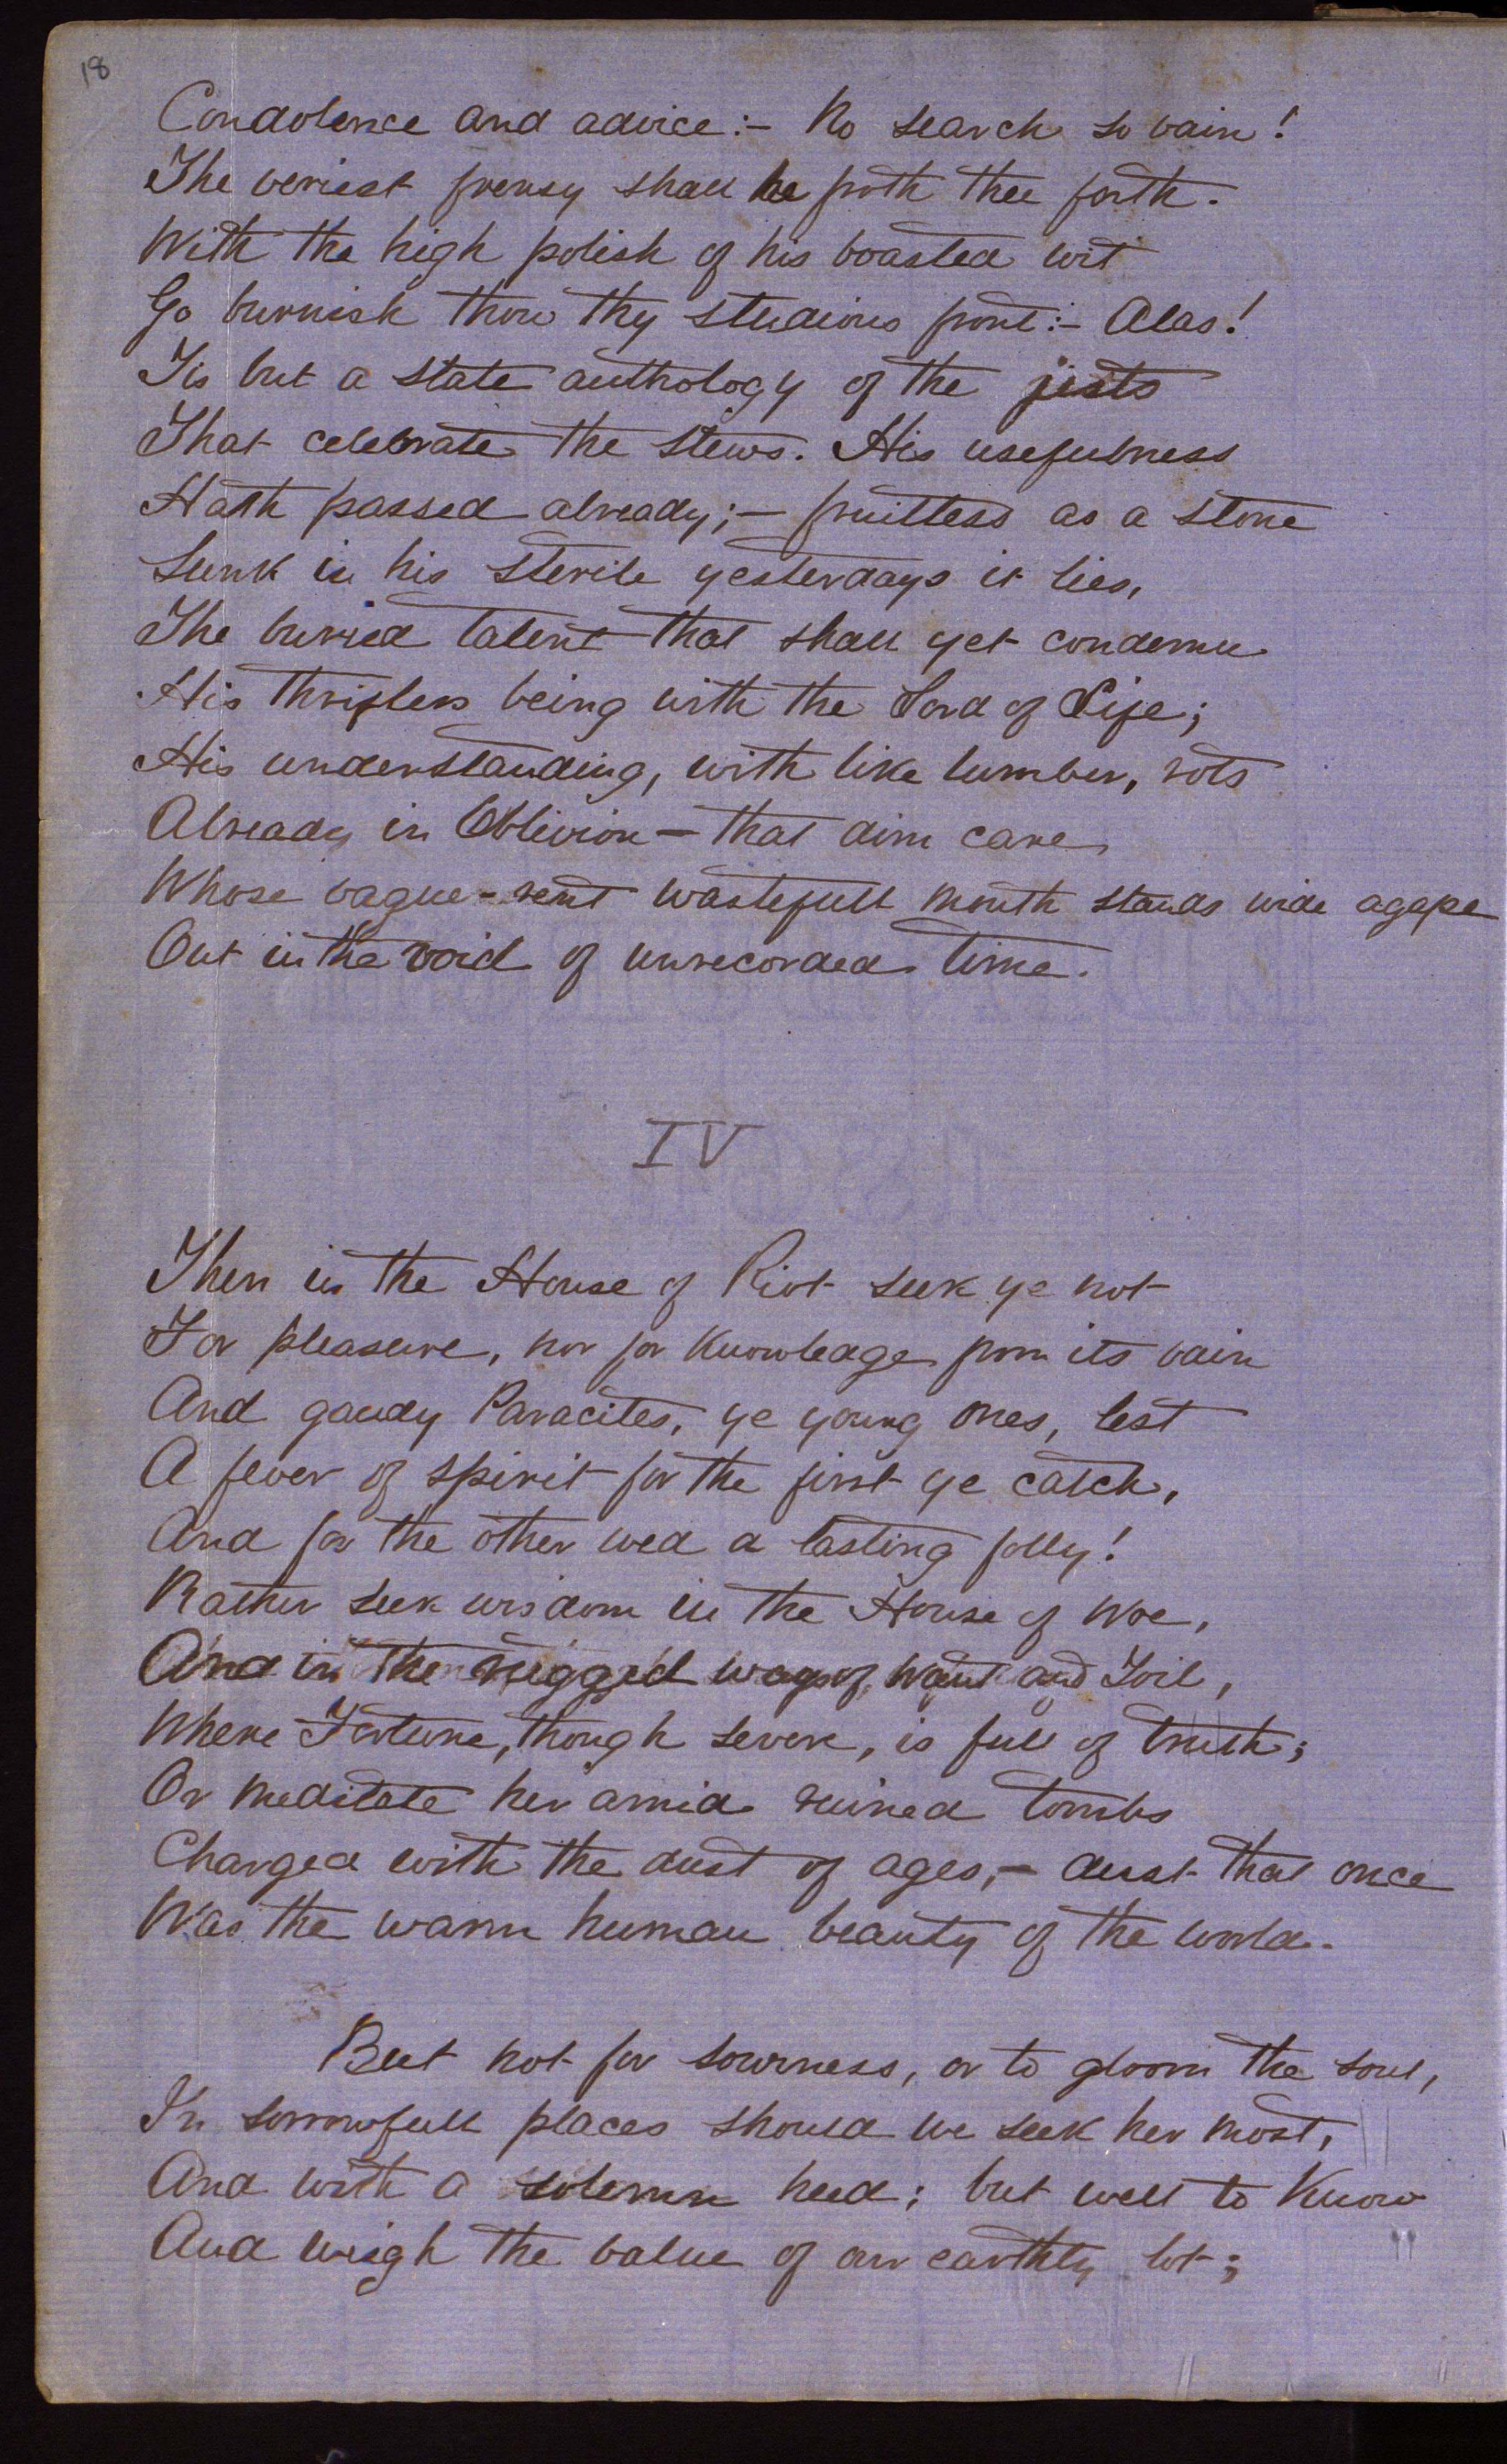 18
Condolence and advice:— No search so vain!
The veriest frensy shall he froth thee forth.
With the high polish of his boasted wit
Go burnish thou thy studious front:— Alas!
Tis but a stale anthology of the jests
That celebrate the stews. His usefulness
Hath passed already;— fruitless as a stone
Sunk in his sterile yesterdays it lies,
The buried talent that shall yet condemn
His thriftless being with the Lord of Life;
His understanding, with like lumber, rots
Already in Oblivion — that dim cave
Whose vague-rent wastefull mouth stands wide agape
Out in the void of unrecorded time.
IV
Then in the House of Riot seek ye not
For pleasure, nor for knowledge from its vain
And gaudy Paracites, ye young ones, lest
A fever of spirit for the first ye catch,
And for the other wed a lasting folly!
Rather seek wisdom in the House of Woe,
And in the rugged ways of Want and Toil,
Where Fortune, though severe, is full of truth;
Or meditate her amid ruined tombs
Charged with the dust of ages,— dust that once
Was the warm human beauty of the world.
But not for sourness, or to gloom the soul,
In sorrowfull places should we seek her most,
And with a solemn heed; but well to know
And weigh the value of our earthly lot;